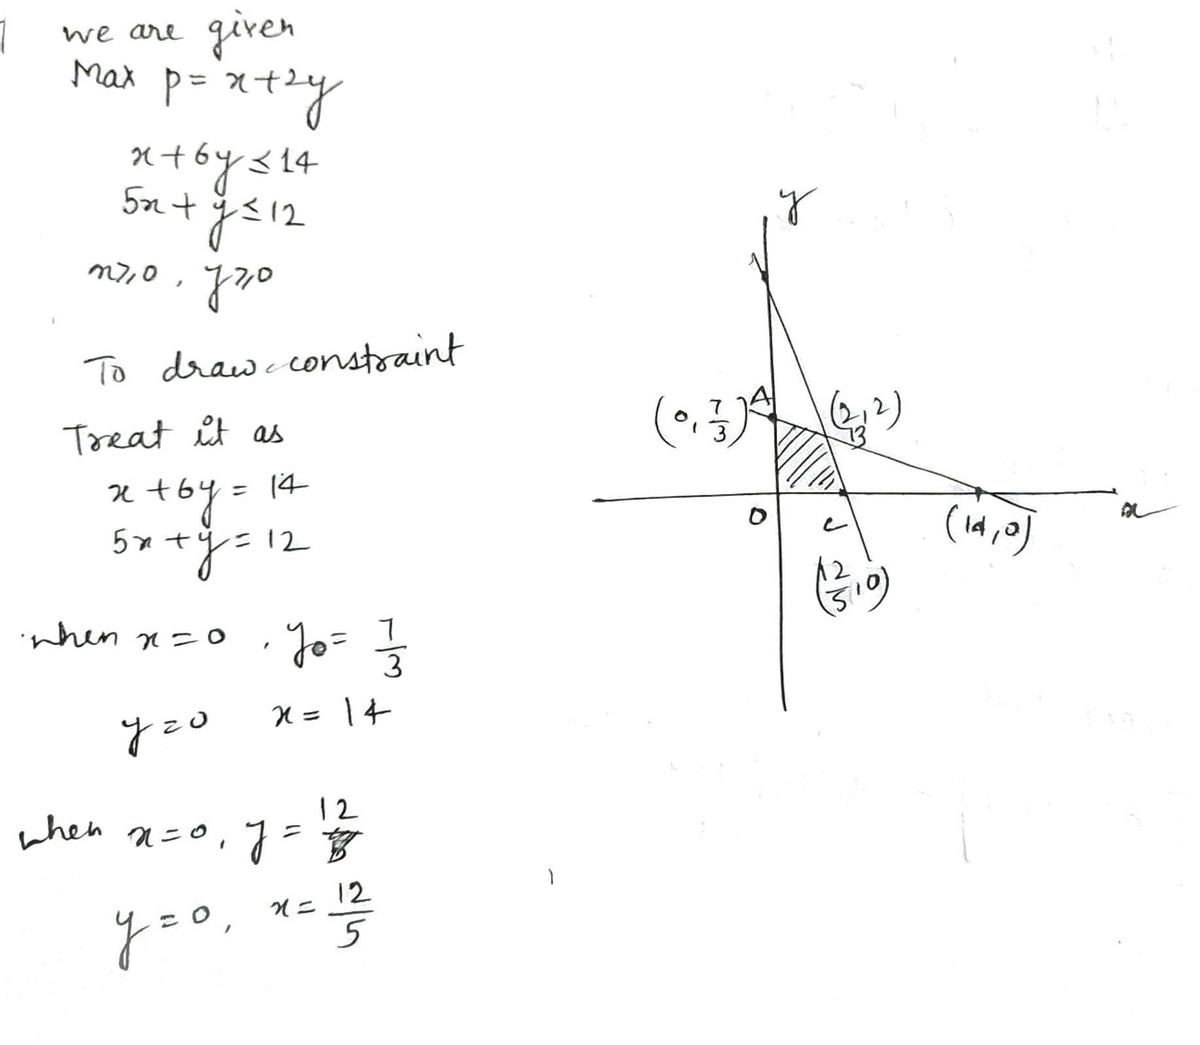 we are given
Max p = x+2y
x+6y ≤ 14
5x+y ≤ 12
x≥0, y≥0
To draw constraint
Treat it as
x+6y = 14
5x+y = 12
when x=0, y₀= 7/3
y=0 x = 14
when x=0, y = 12
y=0, x = 12/5
y
A
(0, 7/3)
O
c
(12/5, 0)
(14, 0)
x